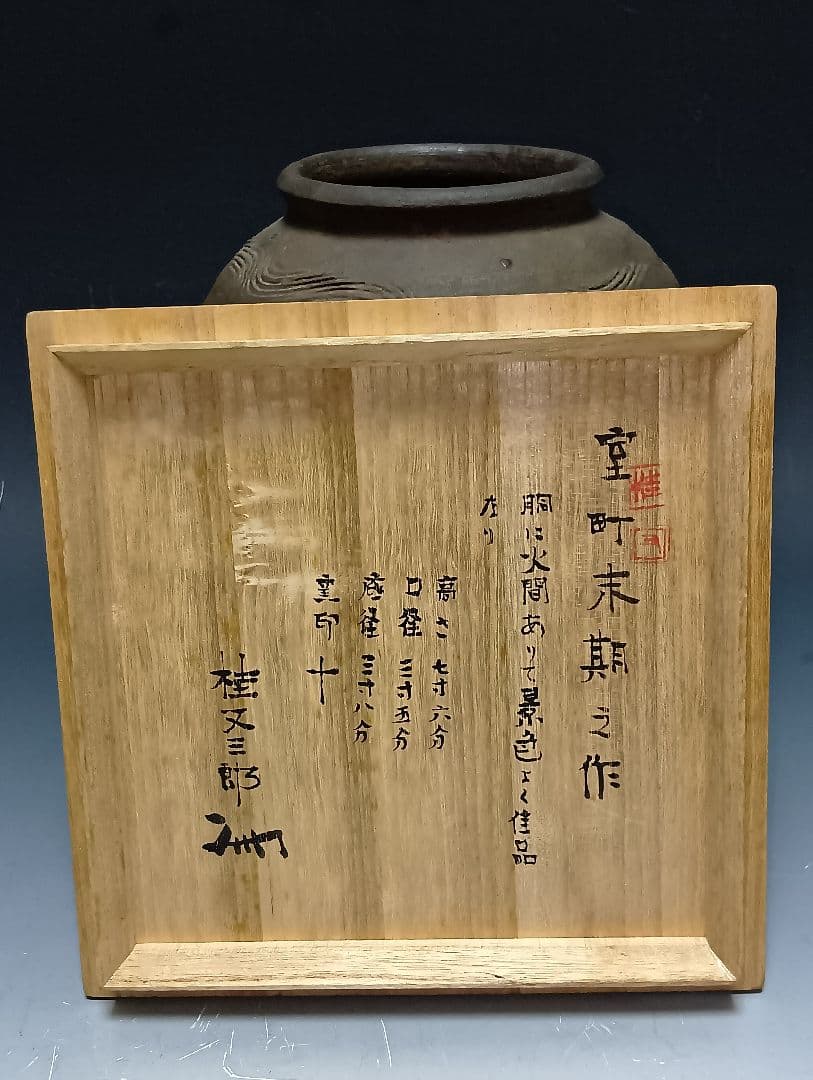 室町末期之作
胴に火間ありて景色よく佳品
なり
高さ七寸六分
口径三寸五分
底径三寸八分
窯印十
桂又三郎